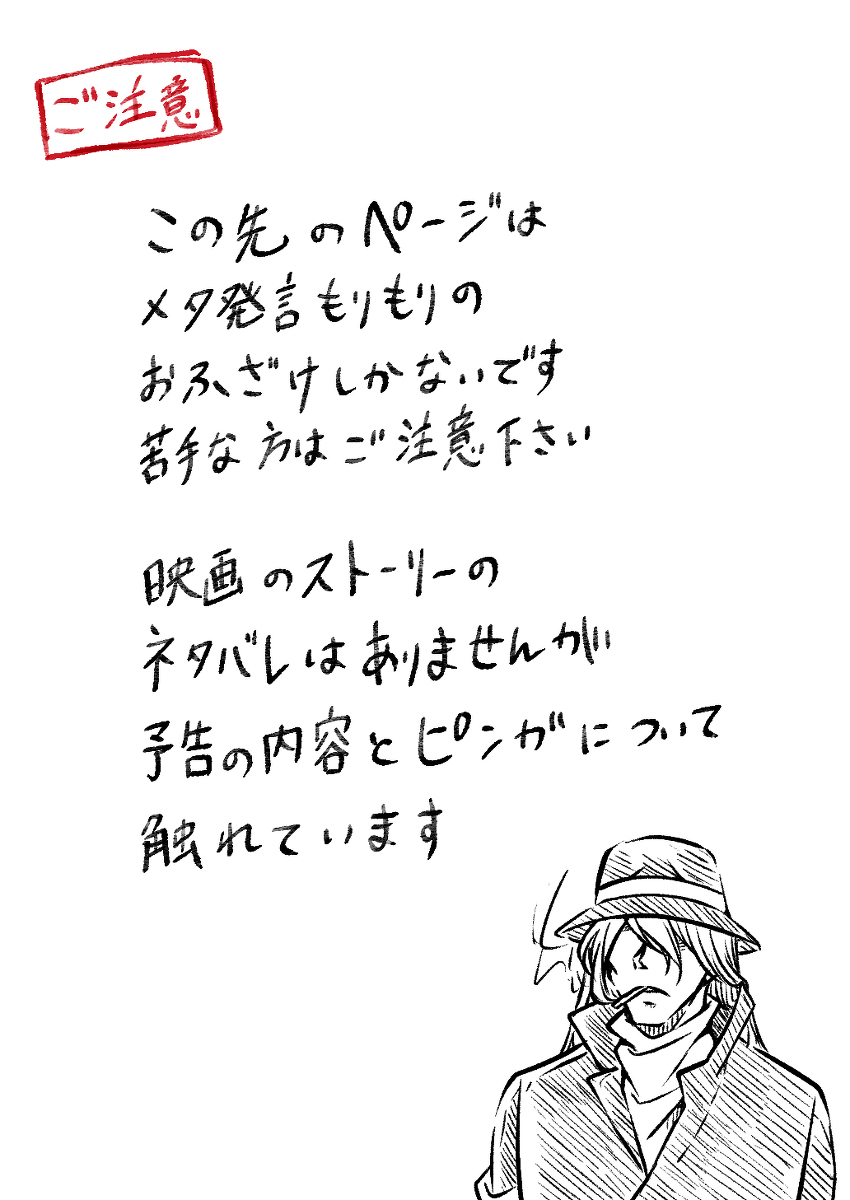 ご注意
この先のページは
メタ発言もりもりの
おふざけしかないです
苦手な方はご注意下さい
映画のストーリーの
ネタバレはありませんが
予告の内容とピンガについて
触れています